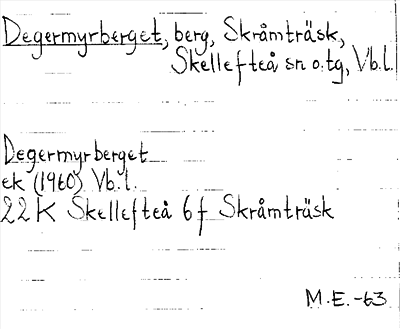 Degermyrberget, berg, Skråmträsk,
Skellefteå sn o. tg, Vb.l.
Degermyrberget
ek (1960) Vb.l.
22 K Skellefteå 6 f Skråmträsk
M.E. -63